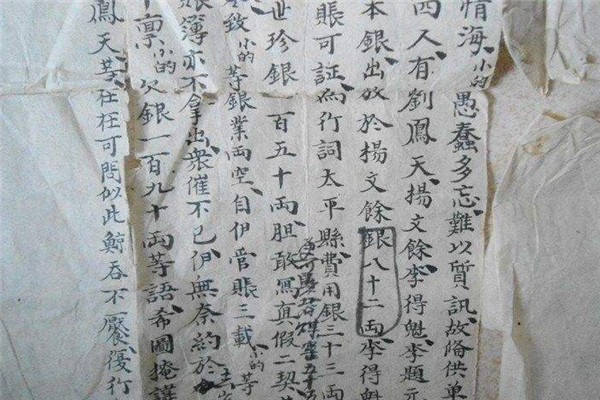 情海小的愚蠢多忘難以質訊故偹供单
四人有劉鳳天揚文餘李得魁李題元
本銀出放於揚文餘銀八十二両李得魁
賬可証為行詞太平縣費用銀三十三両
世珍銀一百五十両胆敢寫真假二契
致小的等銀業両空自伊管賬三載小的等
賬簿亦不拿出衆催不已伊無奈約於
稟小的欠銀一百九十両等語希圖掩
鳳天等在枉可問似此鯨吞不厭優行